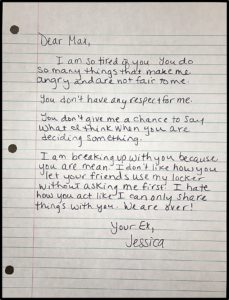 Dear Max,
I am so tired of you. You do
so many things that make me
angry and are not fair to me.
You don't have any respect for me.
You don't give me a chance to say
what I think when you are
deciding something.
I am breaking up with you because
you are mean. I don't like how you
let your friends use my locker
without asking me first. I hate
how you act like I can only share
things with you. We are over!
Your Ex,
Jessica